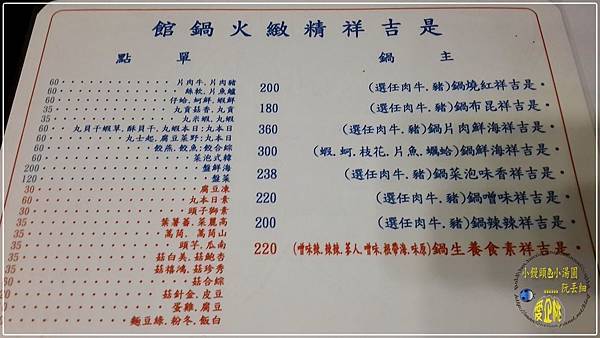 是吉祥精緻火鍋館
主鍋
・是吉祥紅燒鍋(豬.牛肉任選) 200
・是吉祥昆布鍋(豬.牛肉任選) 180
・是吉祥海鮮肉片鍋(豬.牛肉任選) 360
・是吉祥海鮮鍋(蛤蠣.魚片.花枝.蚵.蝦) 300
・是吉祥香味泡菜鍋(豬.牛肉任選) 238
・是吉祥味噌鍋(豬.牛肉任選) 220
・是吉祥辣辣鍋(豬.牛肉任選) 200
・是吉祥素食養生鍋 220
單點
豬肉片.牛肉片 60
鱸魚片.軟絲 60
鮮蝦.鮮蚵.蛤仔 60
貢丸.香菇貢丸 35
蝦丸.蝦米丸 35
日本丸:日本蝦丸.干貝酥.草蝦干貝丸 60
日本丸:野菜豆腐.起士丸
綜合餃:魚餃.燕餃 60
韓式泡菜 60
海鮮盤 200
菜盤 120
凍豆腐 30
素日本丸 60
素獅子頭 30
高麗菜.蕃薯葉 35
山茼萵.茼萵 35
南瓜.芋頭 35
杏鮑菇.美白菇 35
珍秀菇.鴻禧菇 35
綜合菇 60
豆皮.金針菇
豆腐.雞蛋
白飯.冬粉.綠豆麵
小饅頭&小湯圓
玩丟細
愛企桃